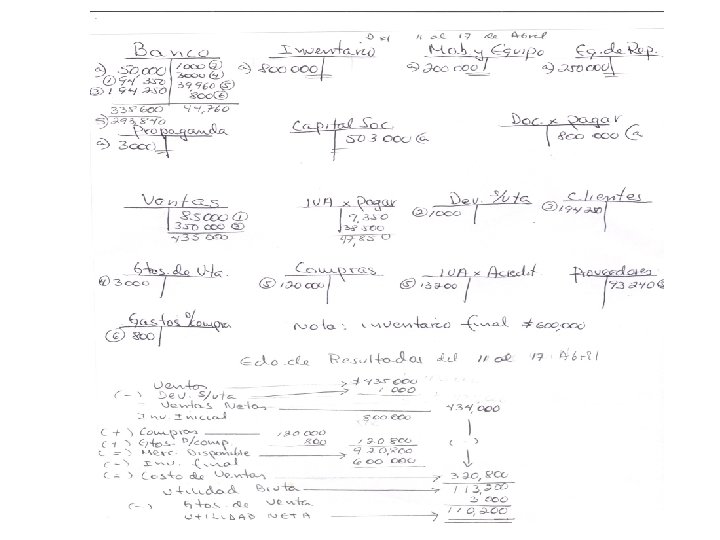 11 al 17 de Abril
Banco Inventario Mob. y Equipo Eq. de Rep.
a) 50,000 1000 ② a) 800 000 a) 200 000 a) 250000
① 94 350 3000 ④
③ 194 250 39,960 ⑤
800 ⑥
338600 44,760
s) 293,840
Propaganda Capital Soc. Doc. x pagar
a) 3000 503 000 (a 800 000 (a
Ventas IVA x Pagar Dev. s/vta Clientes
85000 ① 9,350 ② 1000 ③ 194 250
350 000 ③ 38 500
435 000 47,850
Gtos. de Vta. Compras IVA x Acredit Proveedores
④ 3000 ⑤ 120 000 ⑤ 13200 93240 ⑤
Gastos s/compra Nota: inventario final $600,000
⑥ 800
Edo. de Resultados del 11 al 17 Abril
Ventas $435000
(-) Dev. s/vta 1 000
Ventas Netas 434,000
Inv Inicial 800 000
(+) Compras 120 000
(+) Gtos. s/comp. 800 120 800 (-)
(=) Merc. Disponible 920,800
(-) Inv. final 600 000
(=) Costo de Ventas 320,800
Utilidad Bruta 113,200
(-) Gtos. de Venta 3 000
UTILIDAD NETA 110,200